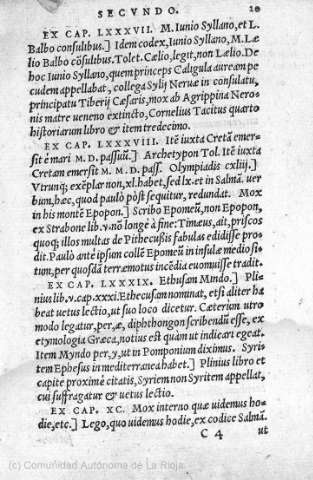 SECVNDO. 20
EX CAP. LXXXVII. M. Iunio Syllano, et L.
Balbo consulibus.] Idem codex, Iunio Syllano, M. Læ
lio Balbo cōsulibus. Tolet. Cælio, legit, non Lælio. De
hoc Iunio Syllano, quem princeps Caligula auream pe
cudem appellabat, collega Sylij Neruæ in consulatu,
principatu Tiberij Cæsaris, mox ab Agrippina Nero-
nis matre ueneno extincto, Cornelius Tacitus quarto
historiarum libro & item tredecimo.
EX CAP. LXXXVIII. Itē iuxta Cretā emer-
sit è mari M. D. passuū.] Archetypon Tol. Itē iuxta
Cretam emersit M. M. D. pass. Olympiadis cxliij.]
Vtrunq; exēplar non, xl. habet, sed lx. et in Salmā. uer
bum, hæc, quod paulò pòst sequitur, redundat. Mox
in his montē Epopon.] Scribo Epomeū, non Epopon,
ex Strabone lib. v. nō longè à fine: Timæus, ait, priscos
quoq; illos multas de Pithecusis fabulas edidisse pro-
dit. Paulò ante ipsum collē Epomeū in insulæ medio si
tum, per quosdā terræmotus incēdia euomuisse tradit.
EX CAP. LXXXIX. Ethusam Mindo.] Pli
nius lib. v. cap. xxxi. Ethecusam nominat, etsi aliter ha
beat uetus lectio, ut suo loco dicetur. Cæterùm utro
modo legatur, per, æ, diphthongon scribendū esse, ex
etymologia Græca, notius est quàm ut indicari egeat.
Item Myndo per, y, ut in Pomponium diximus. Syri-
tem Ephesus in mediterranea habet.] Plinius libro et
capite proximè citatis, Syriem non Syritem appellat,
cui suffragatur & uetus lectio.
EX CAP. XC. Mox interno quæ uidemus ho-
die, etc.] Lego, quo uidemus hodie, ex codice Salmā.
C 4 ut
(c) Comunidad Autónoma de La Rioja